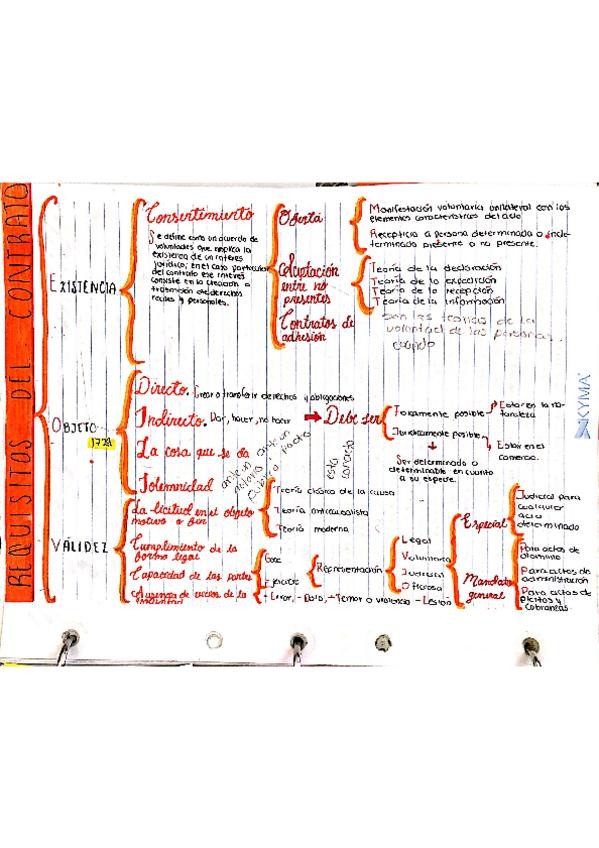 REQUISITOS DEL CONTRATO
EXISTENCIA
Consentimiento
Se define como un acuerdo de
voluntades que implica la
existencia de un interés
jurídico; en el caso particular
del contrato ese interés
consiste en la creación o
transmisión de derechos
reales y personales.
Oferta
Manifestación voluntaria unilateral con los
elementos característicos del acto
Recepticia a persona determinada o inde-
terminada presente o no presente.
Aceptación
entre no
presentes
Teoría de la declaración
Teoría de la expedición
Teoría de la recepción
Teoría de la información
Son las teorías de la
voluntad de las personas.
Contratos de
adhesión
OBJETO
1728
Directo. Crear o transferir derechos y obligaciones
Indirecto. Dar, hacer, no hacer
Debe ser
Físicamente posible
Estar en la na-
turaleza
Jurídicamente posible
Estar en el
comercio.
Ser determinado o
determinable en cuanto
a su especie.
La cosa que se da
Solemnidad
ante un
notario
público
VÁLIDEZ
La licitud en el objeto
motivo o fin
Teoría clásica de la causa
Teoría anticausalista
Teoría moderna
Cumplimiento de la
forma legal
Capacidad de las partes
Goce
Ejercicio
Representación
Legal
Voluntaria
Judicial
Oficiosa
Especial
Judicial para
cualquier
acto
determinado
Mandato
general
Para actos de
dominio
Para actos de
administración
Para actos de
pleitos y
cobranzas
Ausencia de vicios de la
voluntad
-Error, -Dolo, -Temor o violencia -Lesión
KYMA